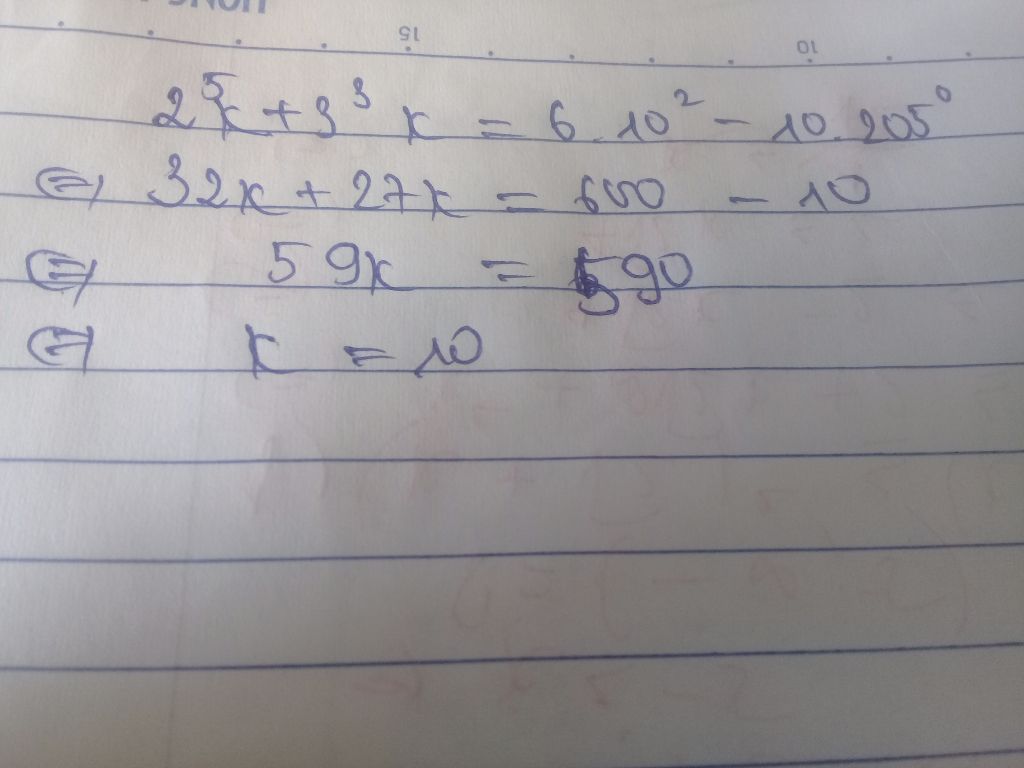 15 10
2⁵k + 3³ k = 6.10² - 10.205⁰
⇔ 32k + 27k = 600 - 10
⇔ 59k = 590
⇔ k = 10